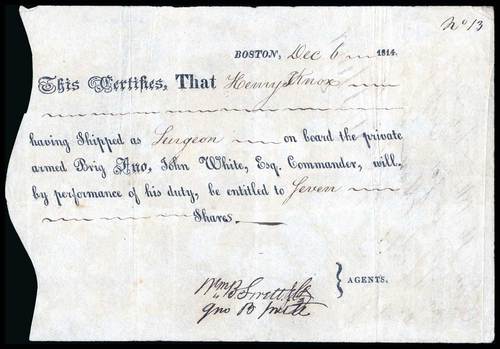 No 13
BOSTON, Dec 6 1814.
This Certifies, That Henry Knox
having Shipped as Surgeon on board the private
armed Brig Ino, John White, Esq. Commander, will,
by performance of his duty, be entitled to Seven
Shares.
Wm B Swett & Co
AGENTS.
Jno B